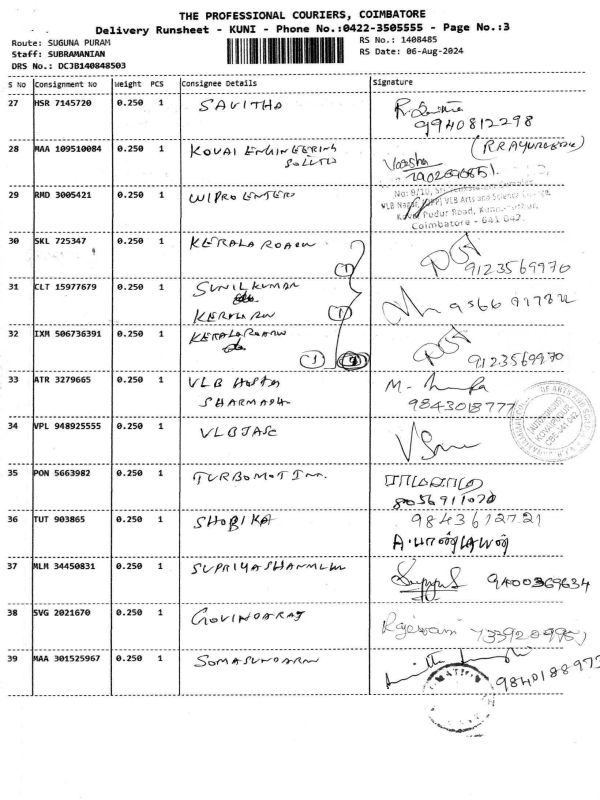 THE PROFESSIONAL COURIERS, COIMBATORE
Delivery Runsheet - KUNI - Phone No.:0422-3505555 - Page No.:3
Route: SUGUNA PURAM
RS No.: 1408485
Staff: SUBRAMANIAN
RS Date: 06-Aug-2024
DRS No.: DCJB140848503
S No Consignment No Weight PCS Consignee Details Signature
27 HSR 7145720 0.250 1 SAVITHA
9940812298
28 MAA 109510084 0.250 1 KOVAI ENGINEERING
(RRAYURVEDIC)
Varsha
29 RMD 3005421 0.250 1 WIPRO ENTER
No: 8/10, Sri
VLB Nagar, VLB Arts and Science
Pudur Road,
Coimbatore - 641 042.
30 SKL 725347 0.250 1 KERALA ROADW
(1)
9123569970
31 CLT 15977679 0.250 1 SUNIL KUMAR
KERALA RW
(1)
32 IXM 506736391 0.250 1 KERALA ROADW
(1)
9123569970
33 ATR 3279665 0.250 1 VLB HOSTA
SHARMASH
M.
9843018777
34 VPL 948925555 0.250 1 VLBJASC
35 PON 5663982 0.250 1 TURBOMOT IND.
8056911070
36 TUT 903865 0.250 1 SHOBIKA
9843612721
37 MLM 34450831 0.250 1 SUPRIYASHANMUM
9400369634
38 SVG 2021670 0.250 1 GOVINDARAJ
Rajeswari
39 MAA 301525967 0.250 1 SOMASUNDARM